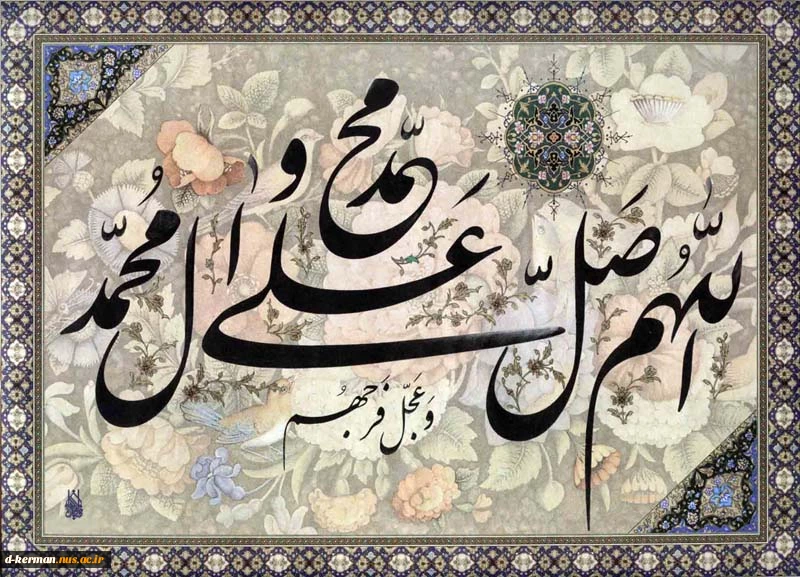 اللّهُم صَلّ عَلی محمّد و ال مُحمّد
وَ عَجّل فرجهُم
d-kerman.nus.ac.ir